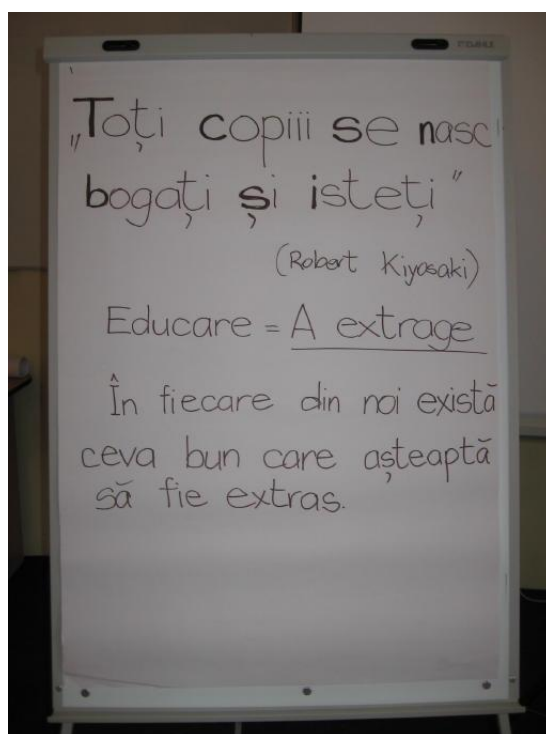 „Toți copiii se nasc
bogați și isteți"
(Robert Kiyosaki)
Educare = A extrage
În fiecare din noi există
ceva bun care așteaptă
să fie extras.